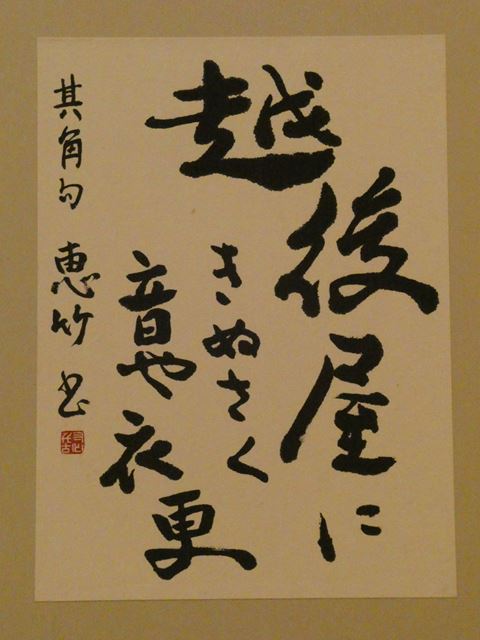 越後屋に
きぬさく
音や衣更
其角句 恵竹書